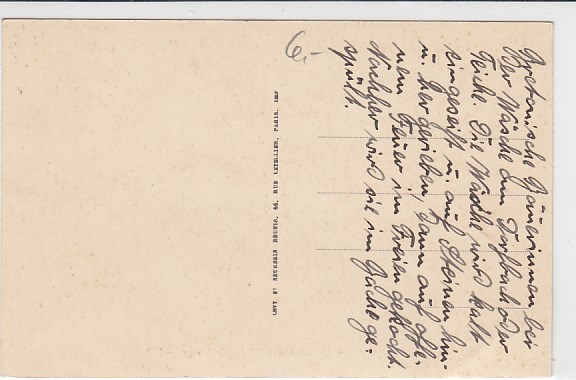 Bretonische Bäuerinnen bei
der Wäsche am Dorfbach oder
Teiche. Die Wäsche wird kalt
eingeseift u. auf Steinen hin-
u. hergerieben, dann auf offe-
nem Feuer im Freien gekocht.
Nachher wird sie im Bache ge-
spült.
6,-
LEVY ET NEURDEIN REUNIS, 44, RUE LETELLIER, PARIS, IMP